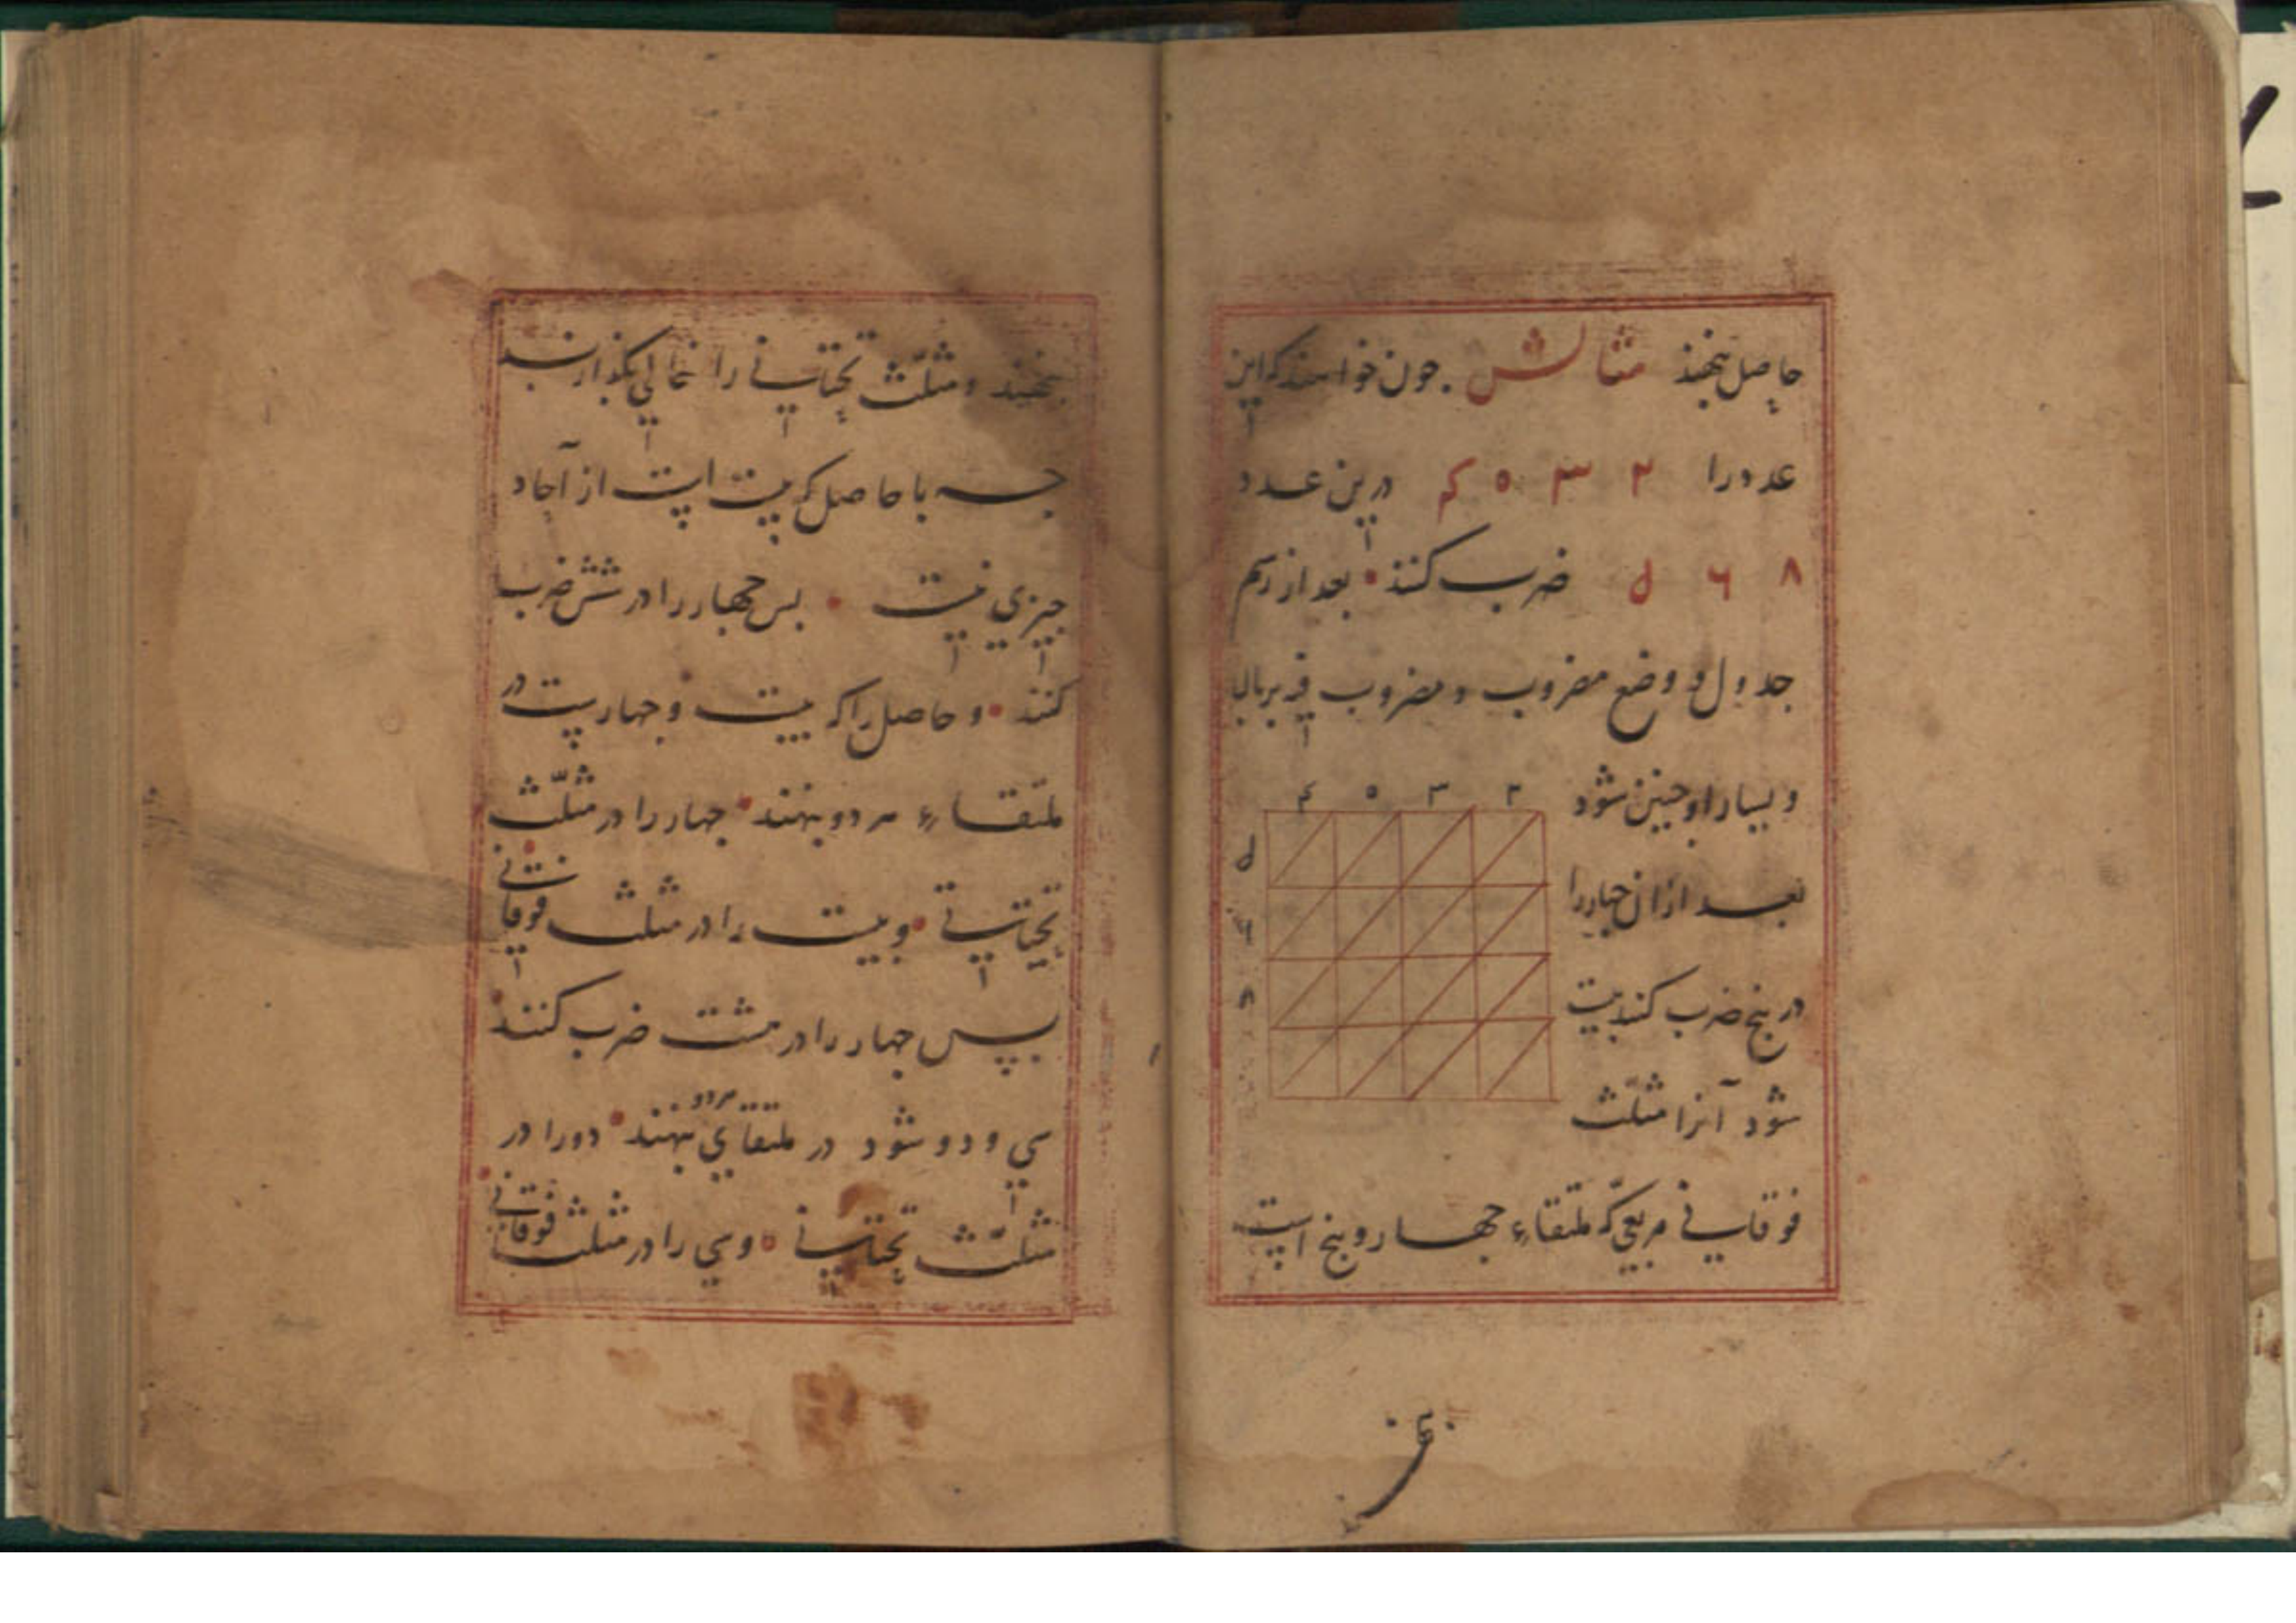 حاصل بنهند مثالش . چون خواهند که این
عدد را ۲ ۳ ۵ ۴ درین عدد
۸ ۶ ۵ ضرب کنند • بعد از رسم
جدول و وضع مضروب و مضروب فیه بر بالا
و یسار او چنین شود
۴ ۵ ۳ ۲
۵
۶
۸
بعد از ان چهار را
در پنج ضرب کنند بیست
شود آنرا مثلّث
فوقانی مربعی که ملتقاء چهار و پنج است
بنهند و مثلّث تحتانی را خالی بگذارند
چه با حاصل که بیست است از آحاد
چیزی نیست • پس چهار را در شش ضرب
کنند • و حاصل را که بیست و چهارست در
ملتقاء هر دو بنهند • چهار را در مثلّث
تحتانی • و بیست را در مثلث فوقانی
پس چهار را در هشت ضرب کنند
سی و دو شود در ملتقای هر دو بنهند • دو را در
مثلّث تحتانی • و سی را در مثلث فوقانی